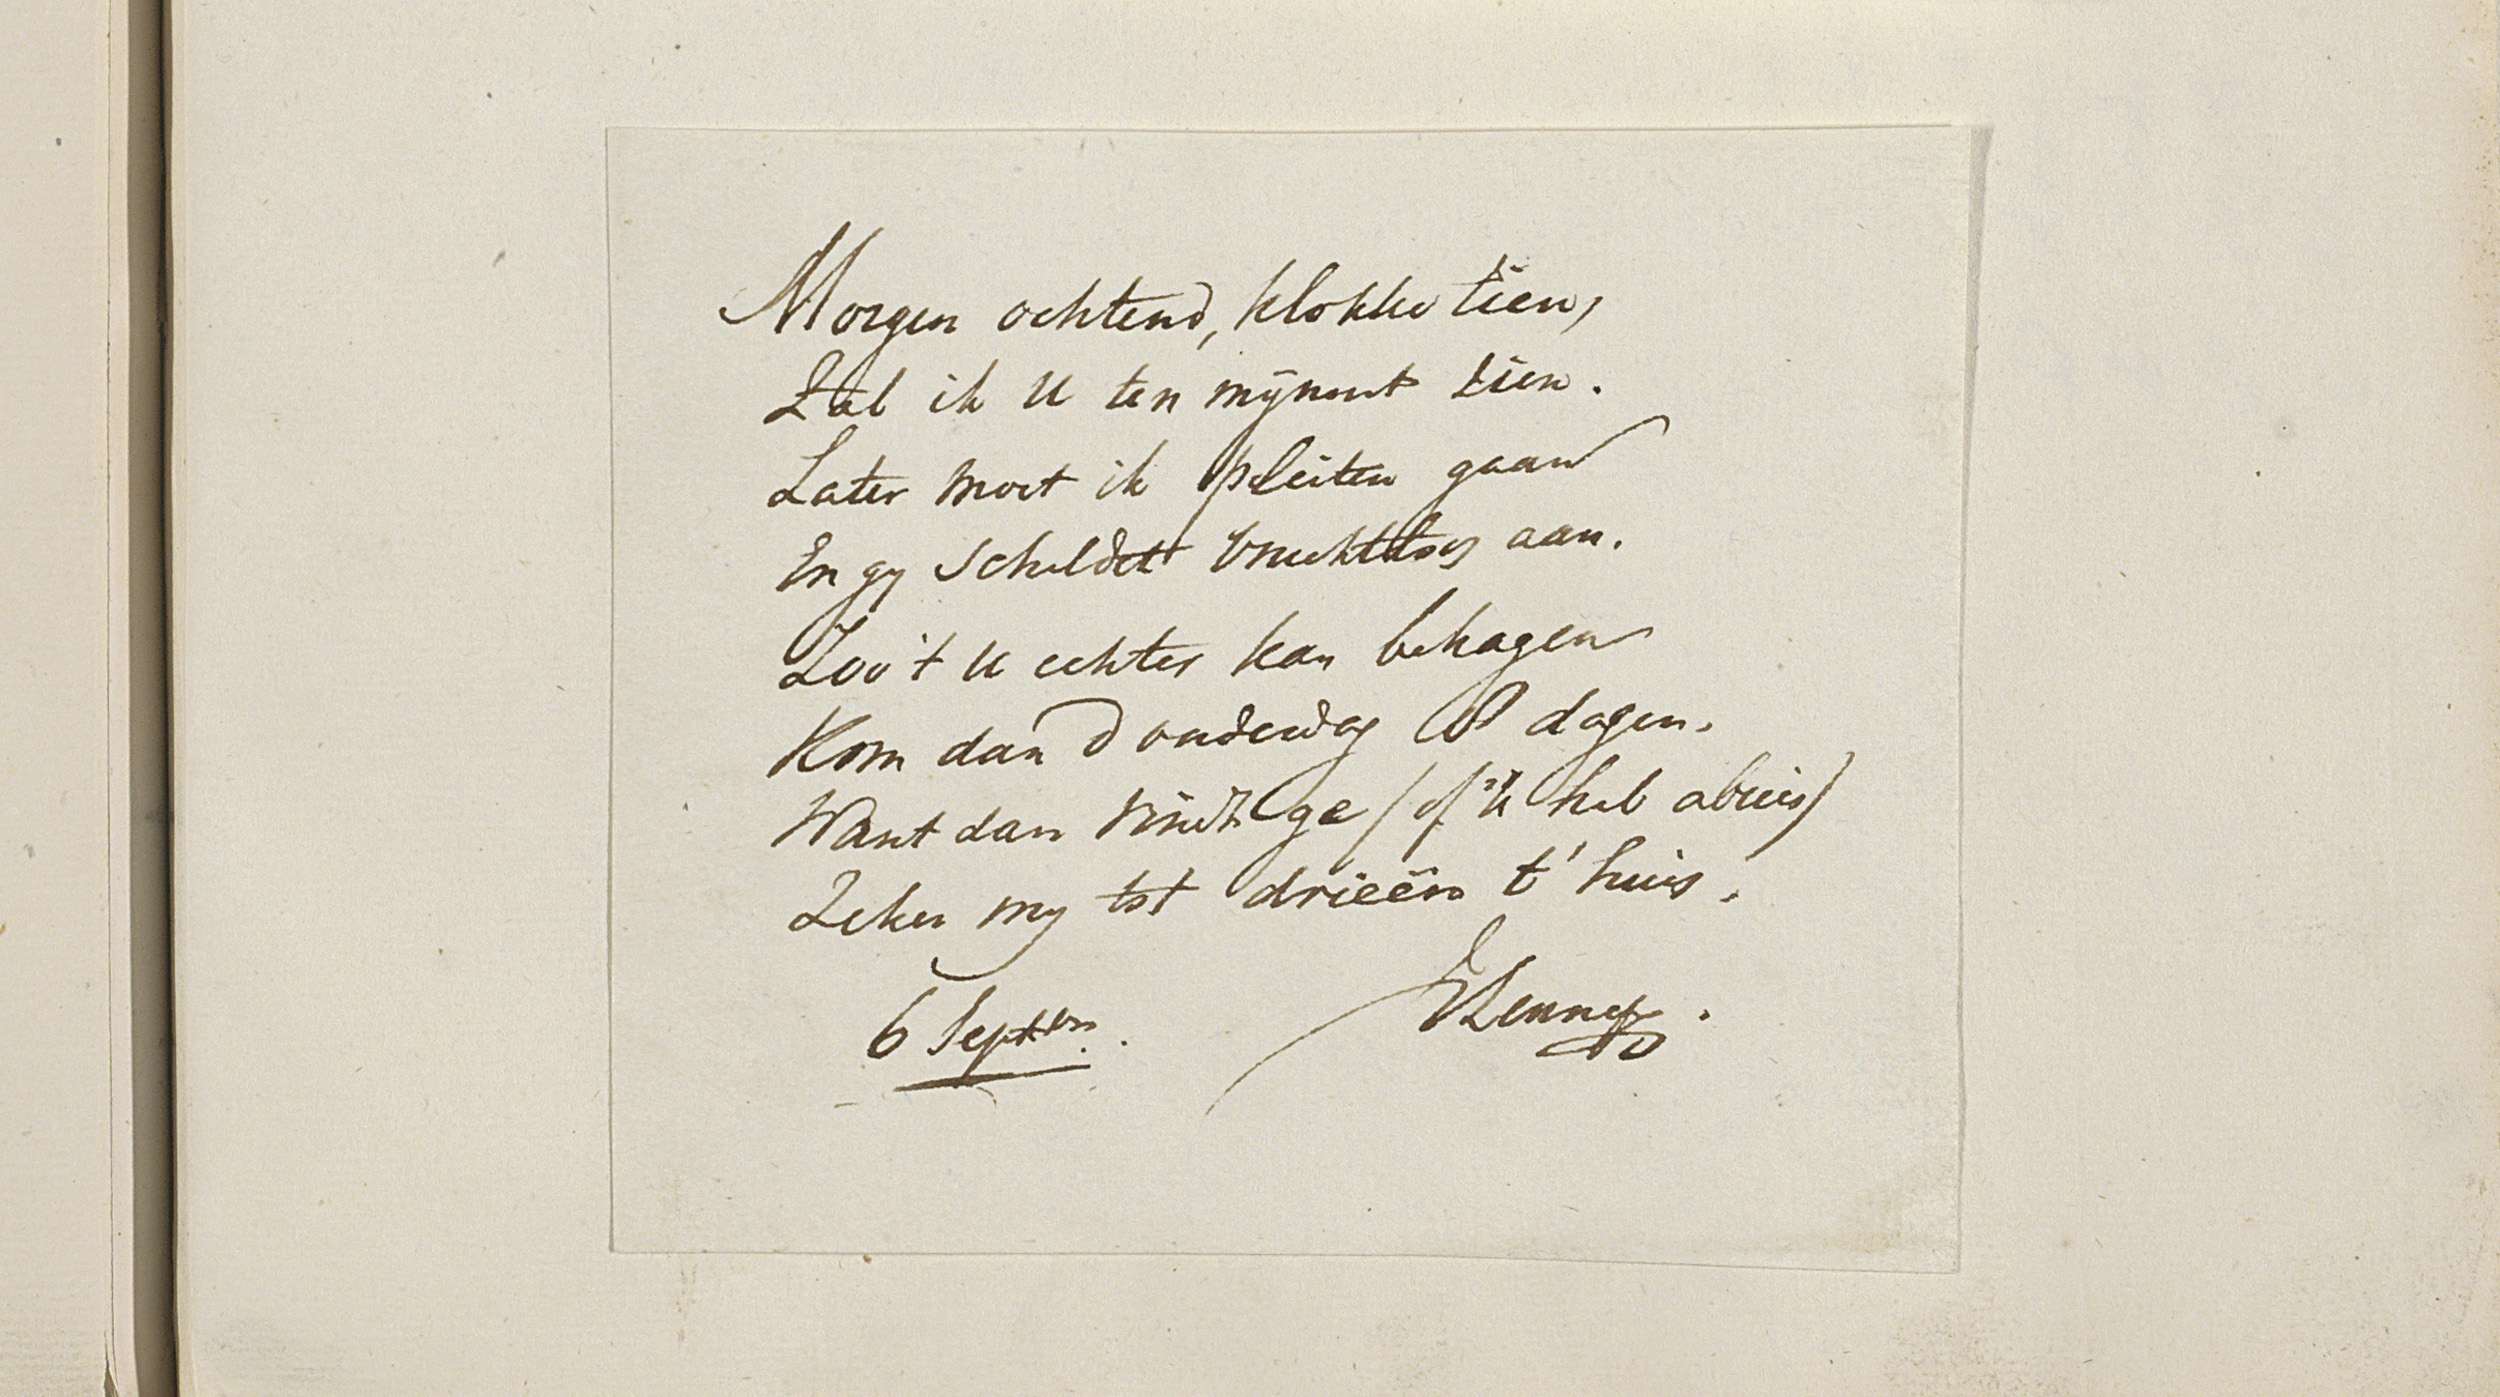 Morgen ochtend, klokke tien,
Zal ik U ten mynent zien.
Later moet ik pleiten gaan
En gy scheldett vruchtloos aan.
Zoo 't U echter kan behagen
Kom dan Donderdag 8 dagen.
Want dan vindt ge (of 'k heb abuis)
Zeker my tot drieën t' huis.
6 Septbr. Lennep.